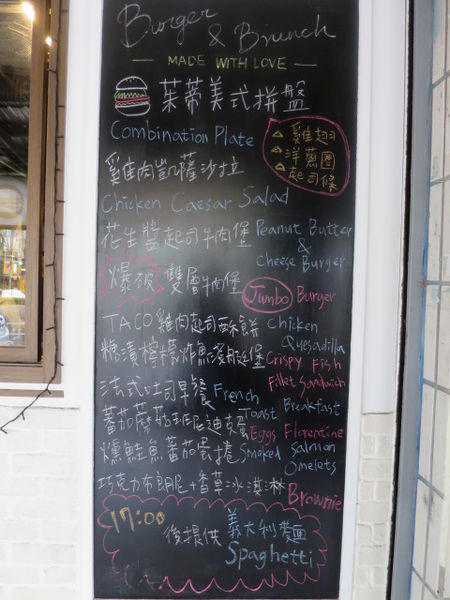 Burger
& Brunch
— MADE WITH LOVE —
茱蒂美式拼盤
Combination Plate
△ 雞翅
△ 洋蔥圈
△ 起司條
雞肉凱薩沙拉
Chicken Caesar Salad
花生醬起司牛肉堡 Peanut Butter
& Cheese Burger
爆飯 雙層牛肉堡 Jumbo Burger
TACO雞肉起司酥餅 Chicken Quesadilla
糖漬檸檬炸魚潛艇堡 Crispy Fish
Fillet Sandwich
法式吐司早餐 French
Toast Breakfast
蕃茄蘑菇班尼迪克蛋 Eggs Florentine
燻鮭魚蕃茄蛋捲 Smoked Salmon
Omelets
巧克力布朗尼+香草冰淇淋 Brownie
17:00 後提供 義大利麵
Spaghetti